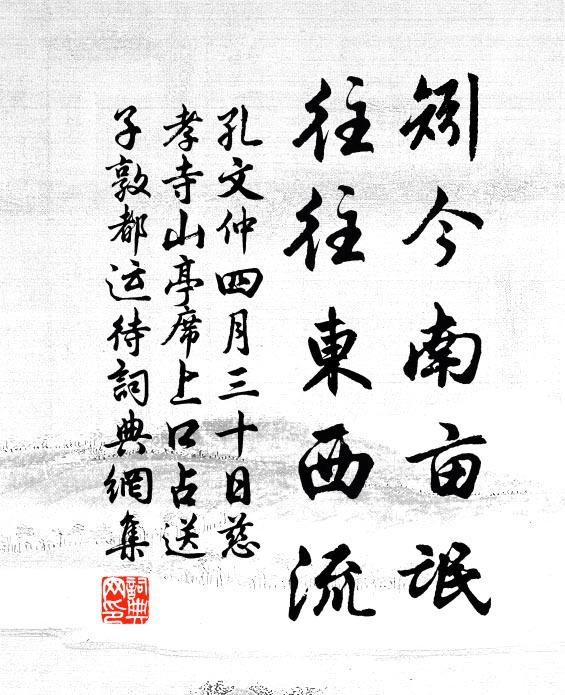 矧今南亩氓
往往東西流
孔文仲四月三十日慈
孝寺山亭席上口占送
子敦都运待詞典網集
詞典
网印